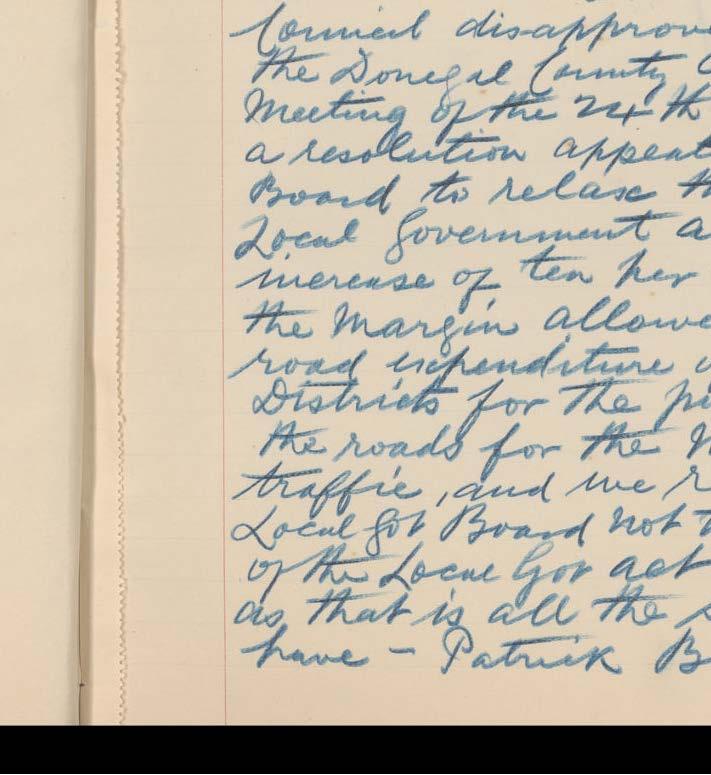 Council disapprove
the Donegal County C
Meeting of the 24th
a resolution appeal
Board to relax th
Local Government a
increase of ten per
the Margin allowe
road expenditure
Districts for the pu
the roads for the M
traffic, and we r
Local Got Board not t
of the Local Gov act
as that is all the s
have - Patrick B